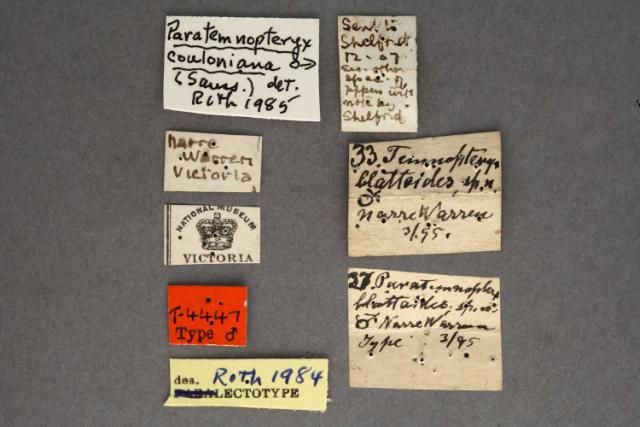 Paratemnopteryx
couloniana ♂
(Sauss.) det.
Roth 1985
Narre
Warren
Victoria
NATIONAL MUSEUM
VICTORIA
T-4447
Type ♂
des. Roth 1984
LECTOTYPE
Sent to
Shelford
12.07
See other
spec. of
Tepper with
note by
Shelford
33. Temnopteryx
blattoides, sp.n.
♂
Narre Warren
3/95.
37. Paratemnopteryx
blattoides, sp. n.
♂ Narre Warren
Type 3/95